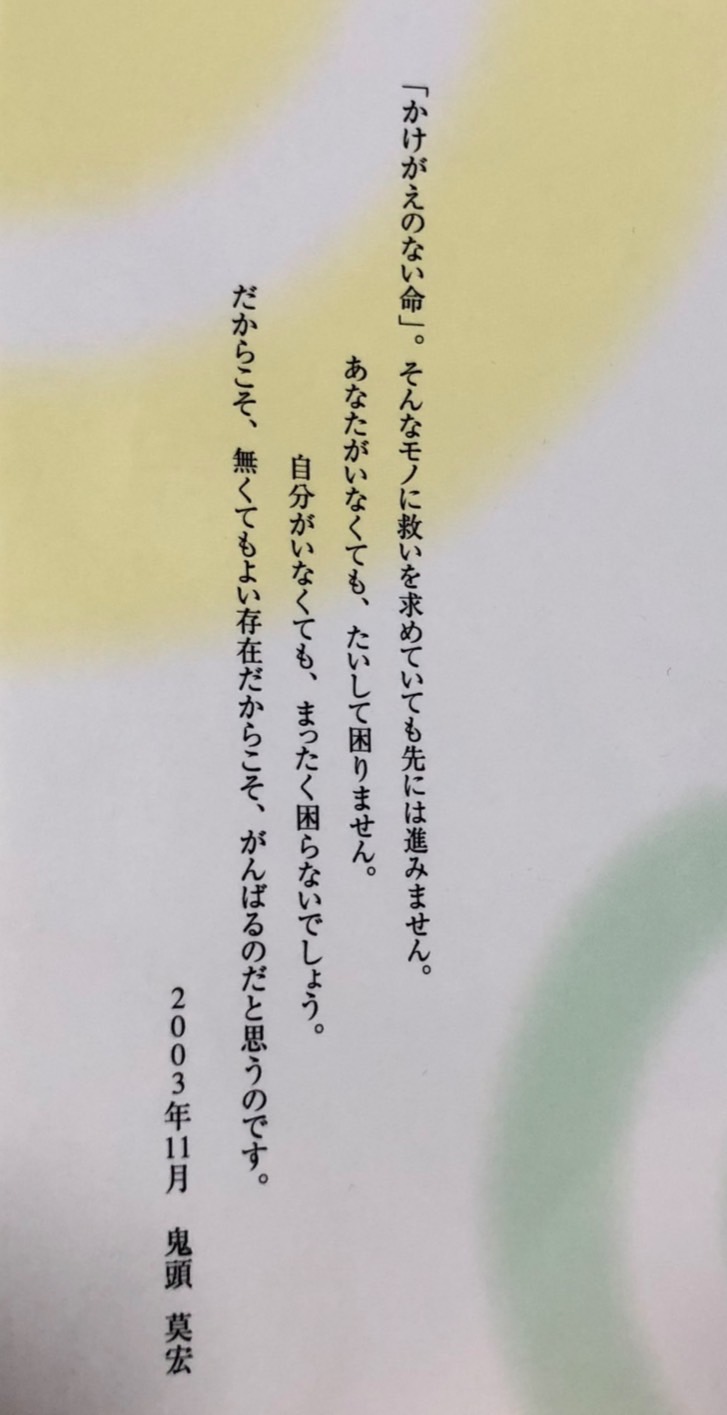 「かけがえのない命」。そんなモノに救いを求めていても先には進みません。
あなたがいなくても、たいして困りません。
自分がいなくても、まったく困らないでしょう。
だからこそ、無くてもよい存在だからこそ、がんばるのだと思うのです。
2003年11月　鬼頭　莫宏